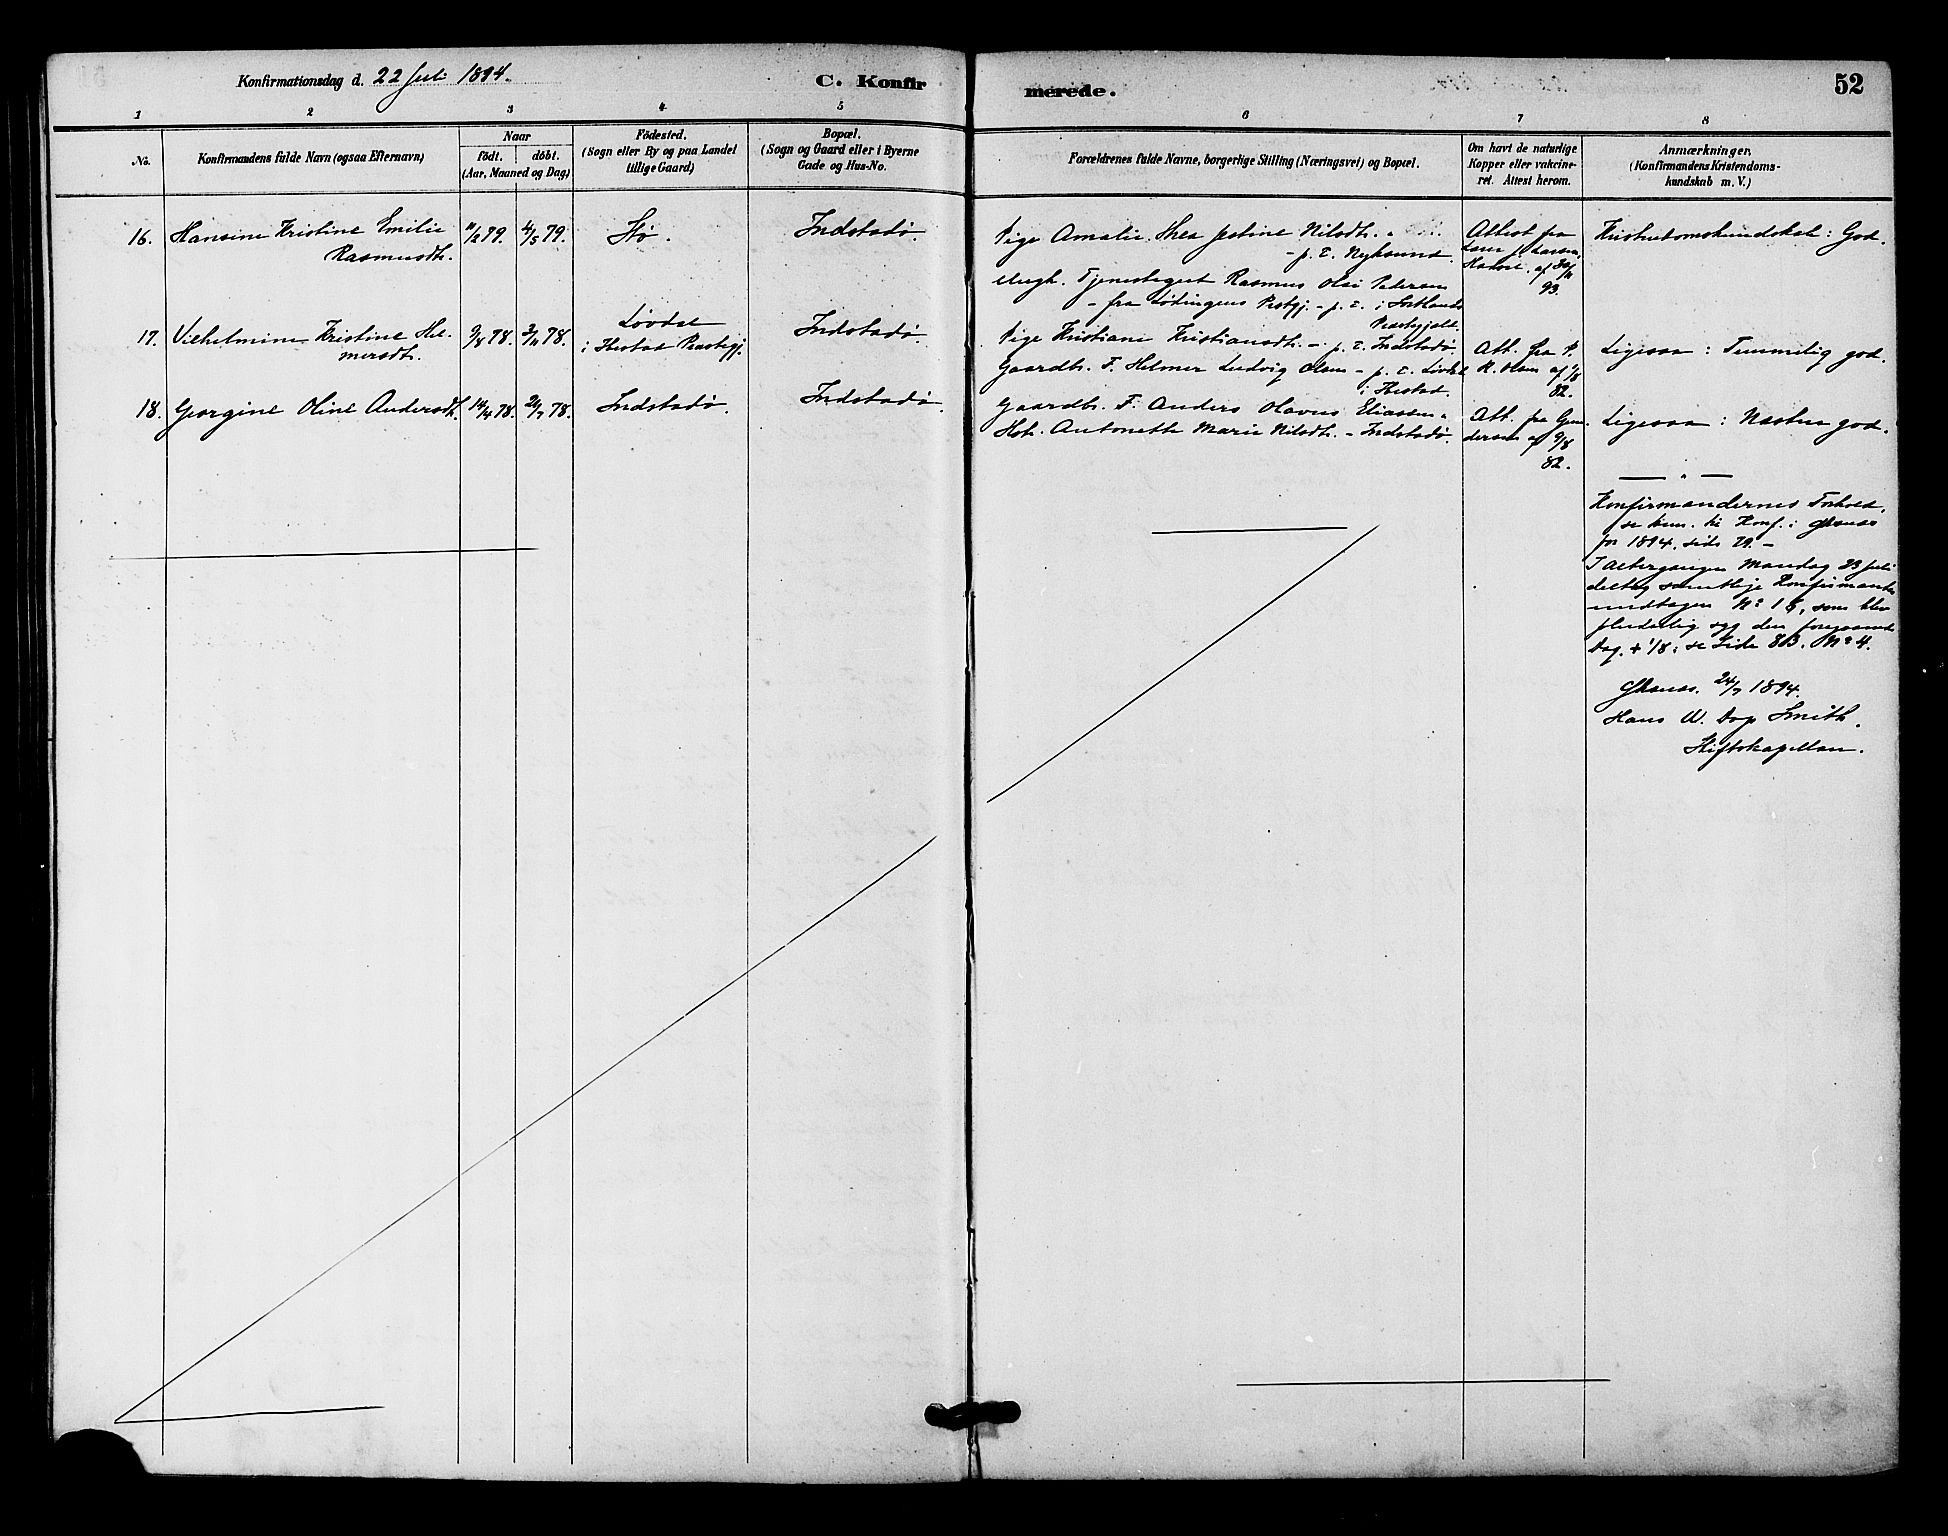 Konfirmationsdag d. 22 Juli 1894.
C. Konfirmerede.
52
1 2 3 4 5 6 7 8
No.
Konfirmandens fulde Navn (ogsaa Efternavn)
Naar
födt. döbt.
(Aar, Maaned og Dag)
Födested.
(Sogn eller By og paa Landet
tillige Gaard)
Bopæl.
(Sogn og Gaard eller i Byerne
Gade og Hus-No.
Forældrenes fulde Navne, borgerlige Stilling (Næringsvei) og Bopæl.
Om havt de naturlige
Kopper eller vakcine-
ret. Attest herom.
Anmærkninger,
(Konfirmandens Kristendoms-
kundskab m. V.)
16. Hansine Kristine Emilie
Rasmusdt.
11/2 79. 4/5 79.
Stø.
Indstadø.
Pige Amalie Thea Jestine Nilsdt.
- p. t. Nyksund.
Ungk. Tjenestegut Rasmus Olai Pedersen
- fra Lødingens Prstgj. - p. t. i Sortlands
Præstegjeld.
Attest fra
Larsen,
af 30/11
93.
Kristendomskundskab: God.
17. Vilhelmine Kristine Hel-
mersdt.
9/8 78. 3/11 78.
Løvdal
i Præstegj.
Indstadø.
Pige Kristiane Kristiansdt. - p. t. Indstadø.
Gaardbr. F. Helmer Ludvig Olsen - p. t. Løvdal
Att. fra P.
R. Olsen af 9/8
82.
Ligesaa: Temmelig god.
18. Georgine Oline Andersdt.
14/4 78. 21/7 78.
Indstadø.
Indstadø.
Gaardbr. F. Anders Olavus Eliassen
Hst. Antonette Marie Nilsdt. - Indstadø.
Att. fra Gun-
dersen af 9/8
82.
Ligesaa: Næsten god.
— " —
Konfirmandernes Forhold,
se til Konf. i
for 1894, side 29. -
I Altergangen Mandag 23 Juli
deltog samtlige Konfirmander
undtagen No 15, som blev
pludselig syg den foregaaende
Dag. + 1/8: se Side 83. No 4.
24/7 1894.
Hans W. Dop Smith.
Stiftskapellan.